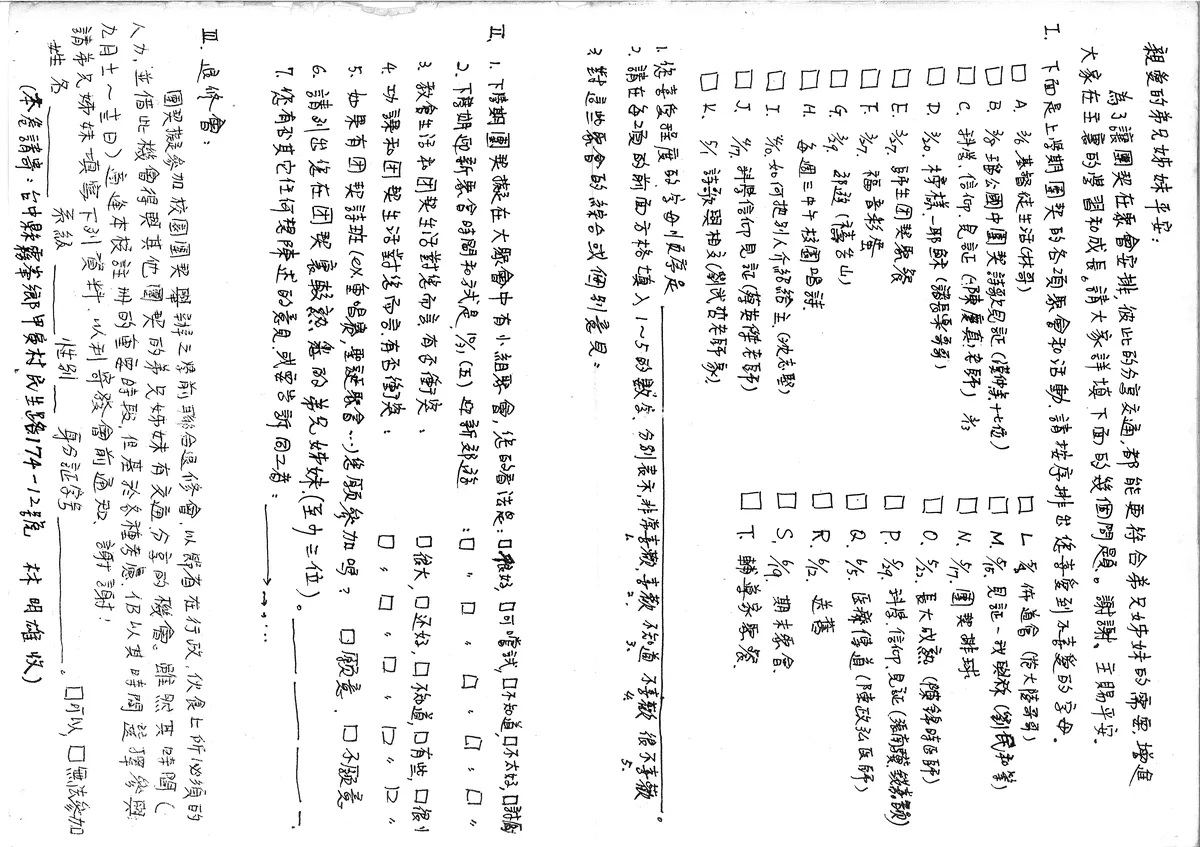 親愛的弟兄姊妹平安:
為了讓團契在聚會安排,彼此的分享交通,都能更符合弟兄姊妹的需要,增進
大家在主裏的學習和成長。請大家詳填下面的幾個問題。謝謝。主賜平安.
I. 下面是上學期團契的各項聚會和活動.請按序排出您喜愛到不喜愛的字母.
□ A. 3/6 基督徒生活(林哥)
□ B. 3/13 埔公國中團契詩歌見証(僅帥等十七位)
□ C. 科學.信仰.見証(陳慶真老師)
□ D. 3/20. 榜樣-耶穌(諸長栗哥哥)
□ E. 3/27. 師生团契聚餐
□ F. 3/27. 福音彩蛋
□ G. 3/29. 郊遊
□ H. 每週三中午校園唱詩
□ I. 4/10. 如何把別人介紹給主.(沈志聖)
□ J. 4/17. 科學信仰見証(蔡英傑老師)
□ K. 5/1 詩歌與相交(劉武哲老師家)
□ L 5/8. 佈道會(詹大陸哥哥)
□ M. 5/15. 見証-我與祢(劉民和等)
□ N. 5/17. 團契排球
□ O. 5/22. 長大成熟(陳錦時医師)
□ P. 5/29. 科學信仰見証(張南驥.錢嘉韻)
□ Q. 6/5. 医療傳道(陳政弘医師)
□ R. 6/12. 送舊
□ S. 6/19. 期末聚會.
□ T. 輔導家聚餐
1. 您喜愛程度的字母順序是
2. 請在每2項的前面方格填入1~5的數字.分別表示,非常喜歡.喜歡.不知道.不喜歡.很不喜歡
1. 2. 3. 4. 5.
3. 對這些聚會的綜合或個別意見:
II. 1. 下學期團契擬在大聚會中有小組聚會,您的看法是:□很好,□可嚐試,□不知道,□不太好,□討厭
2. 下學期迎新聚會時間和方式是10/2,(五)迎新郊遊 :□ 〃 □ 〃 □ 〃 □ 〃 □ 〃
3. 教會生活和团契生活對您而言有否衝突: □很大,□还好,□不知道,□有些,□很少
4. 功課和团契生活對您而言有否衝突: □ 〃 □ 〃 □ 〃 □ 〃 □ 〃
5. 如果有团契詩班(ex重唱,獻詩,聖誕聚會...)您願參加嗎? □願意. □不願意
6. 請列出您在团契裏較熟悉的弟兄姊妹.(至少三位)。
7. 您有否其它任何想陳述的意見或要告訴同工者:
III. 退修會:
團契擬參加校園團契舉辦之學前聯合退修會.以節省在行政,伙食上所必須的
人力,並借此機會得與其他團契的弟兄姊妹有交通分享的機會。雖然其時間(
九月十一~十三日)適逢本校註冊的重要時段,但基於各種考慮仍以其時間選擇參與
請弟兄姊妹填寫下列資料.以利寄發會前通知、謝謝!
姓名 系級 性別 身分証字號 。□可以,□無法參加
(本卷請寄:台中縣霧峯鄉甲寅村民生路174-12號 林明雄收)